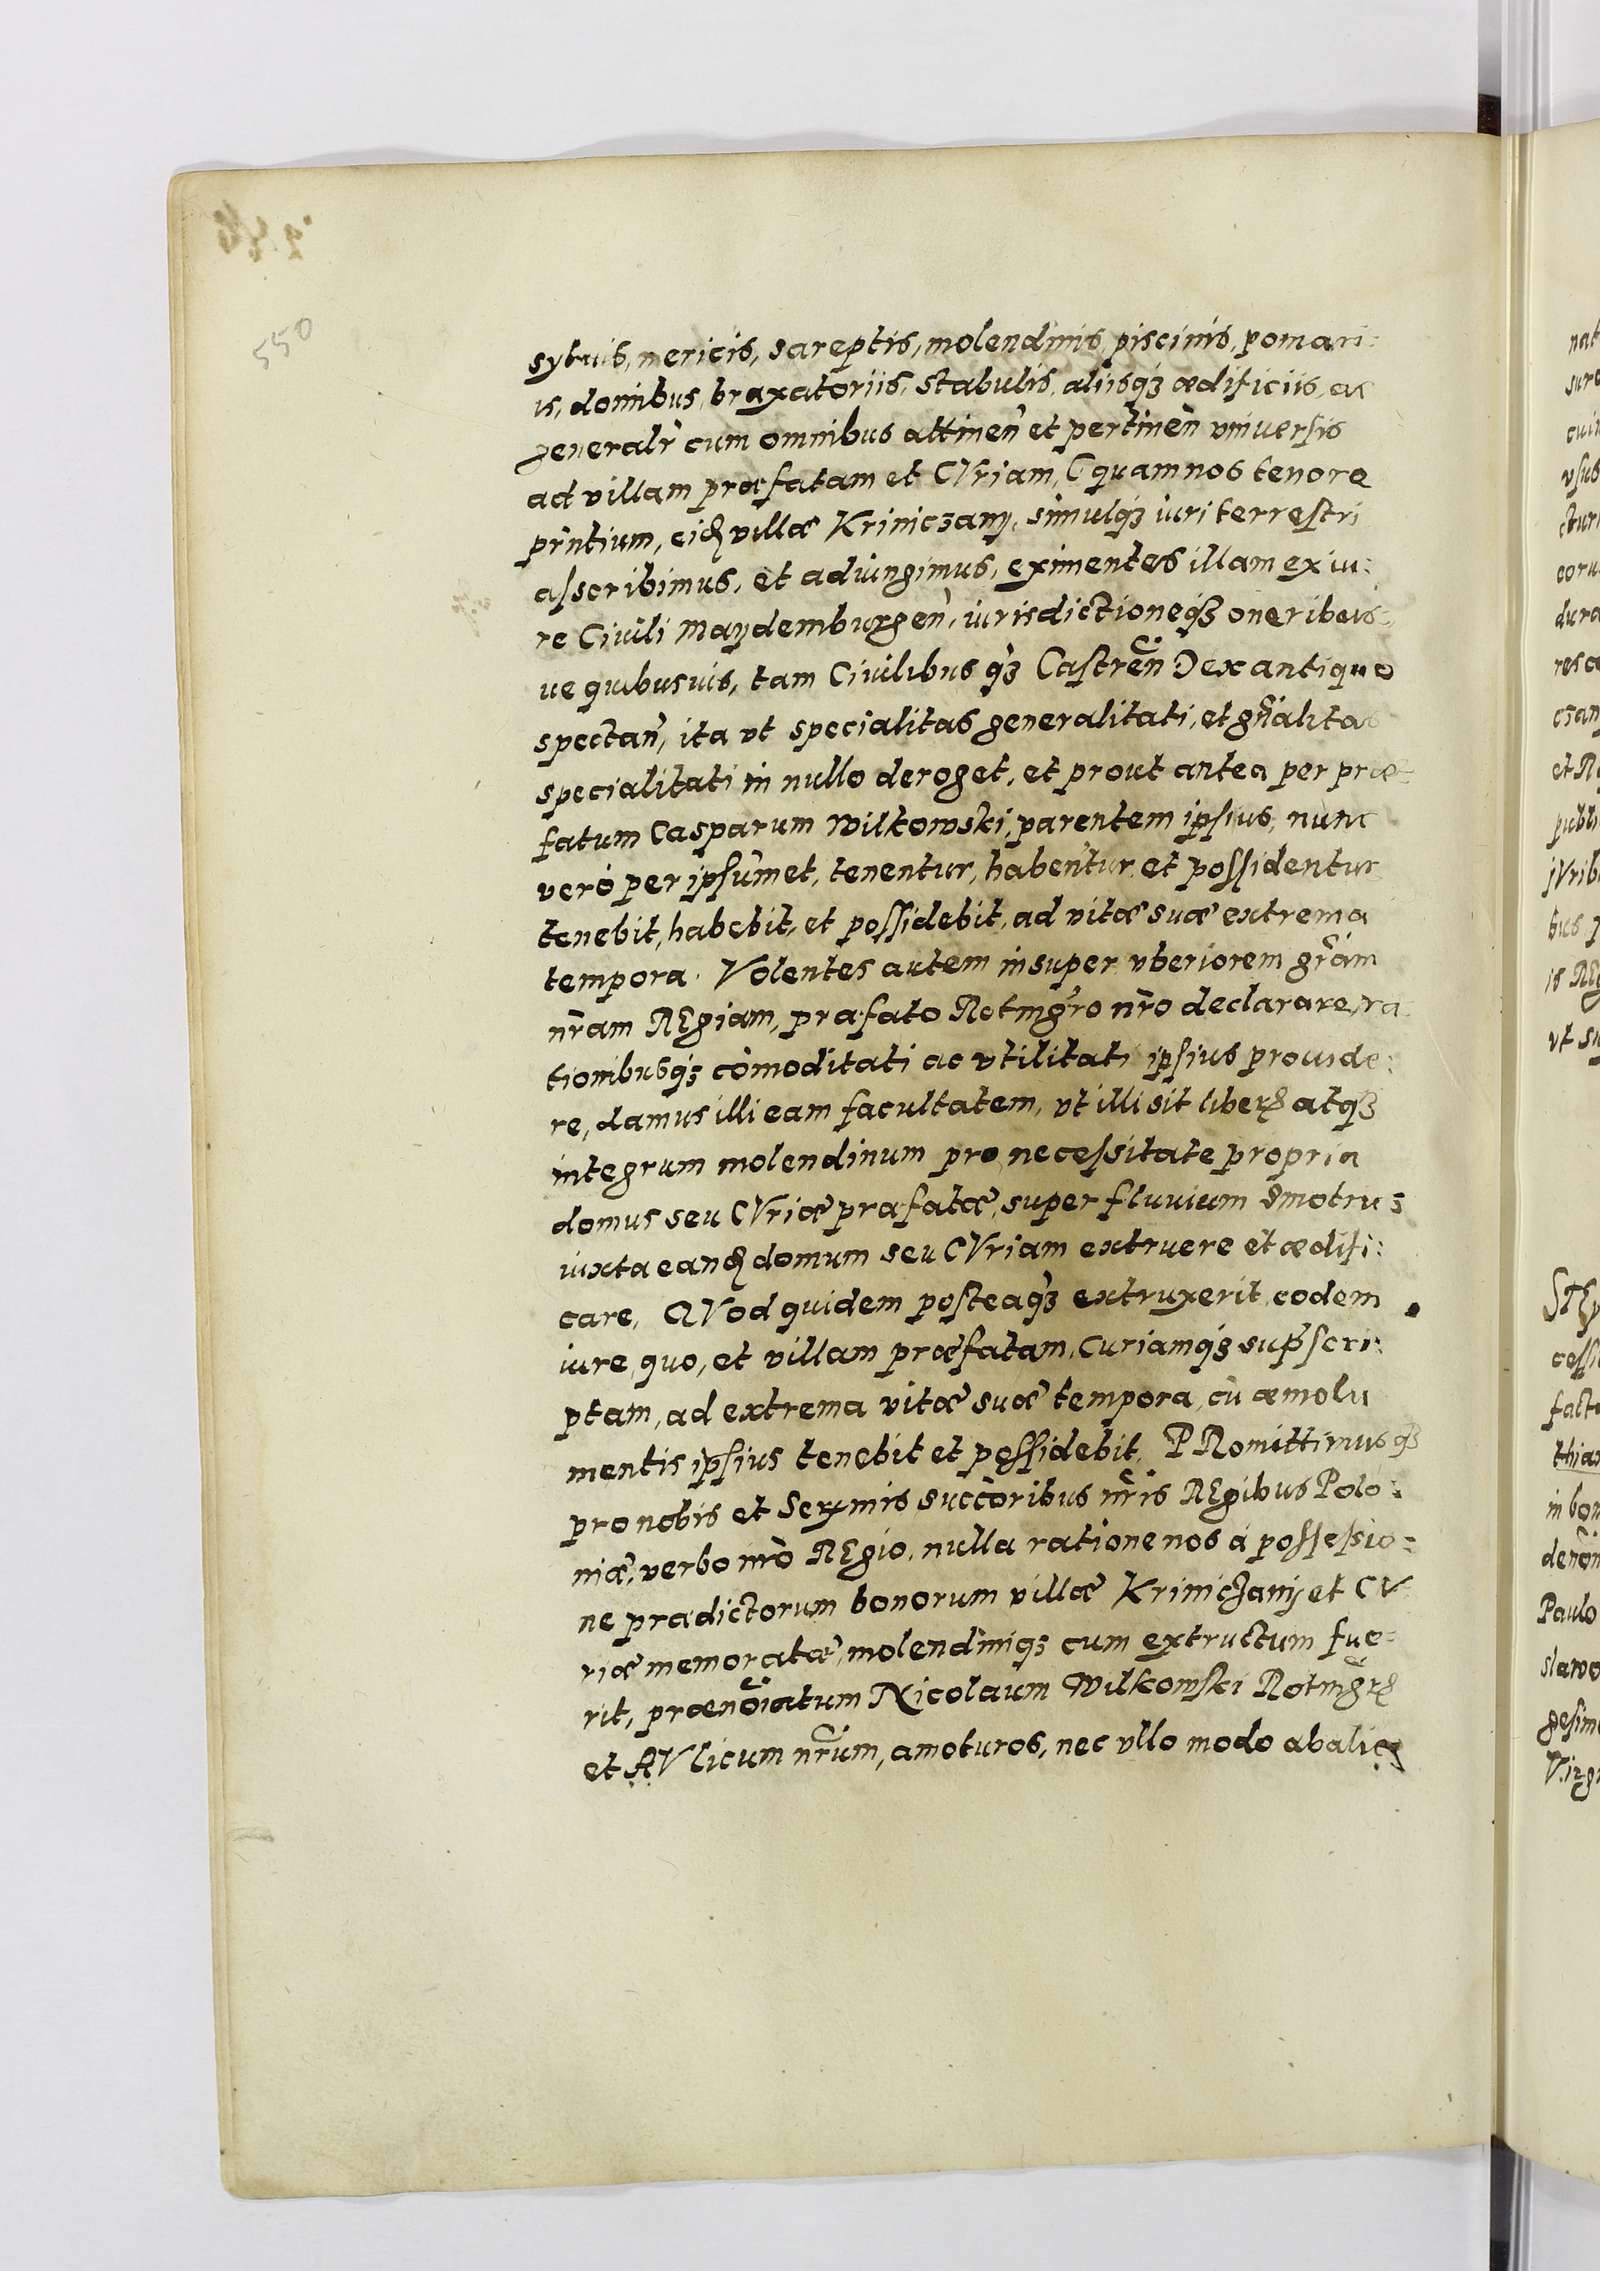 550
sylvis, mericis, sareptis, molendinis, piscinis, pomari:
is, domibus, braxatoriis, stabulis, aliisq3 ædificiis, ac
generalr̃ cum omnibus attinen̄ et pertinen̄ vniuersis
ad villam præfatam et CVriam, (quam nos tenore
pñtium, eid villæ Kriniczany, simulq3 iuri terrestri
asscribimus, et adiungimus, eximentes illam ex iu:
re Ciuili Maydemburgen̄, iurisdictioneq3 oneribus
ue quibusuis, tam Ciuilibus q̃3 Castren̄) ex antiquo
spectan̄, ita vt specialitas generalitati, et gñalitas
specialitati in nullo deroget, et prout antea per præ
fatum Casparum Wilkowski, parentem ipsius, nunc
vero per ipsum̄et, tenentur, habentur et possidentur
tenebit, habebit, et possidebit, ad vitæ suæ extrema
tempora. Volentes autem insuper vberiorem grãm
nr̃am REgiam, præfato Rotmgr̃o nr̃o declarare, ra
tionibusq3 com̄oditati ac vtilitati ipsius prouide:
re, damus illi eam facultatem, vt illi sit liberꝝ atq3
integrum molendinum pro necessitate propria
domus seu CVriæ præfatæ, super fluuium Smotrus
iuxta eand domum seu CVriam extruere et ædifi:
care, QVod quidem posteaq̃3 extruxerit, eodem
iure, quo, et villam præfatam, Curiamq3 sup̃scri:
ptam, ad extrema vitæ suæ tempora, cū æmolu
mentis ipsius tenebit et possidebit. PRomittimusq3
pro nobis et Serꝫmis succ̄oribus nr̃is REgibus Polo:
niæ, verbo nr̃o REgio, nulla ratione nos a possessio:
ne prædictorum bonorum villæ Kriniczany et CV
riæ memoratæ, molendiniq3 cum extructum fue:
rit, prænoīatum Nicolaum Wilkowski Rotmgr̃ꝝ
et AVlicum nr̃um, amoturos, nec vllo modo abalie